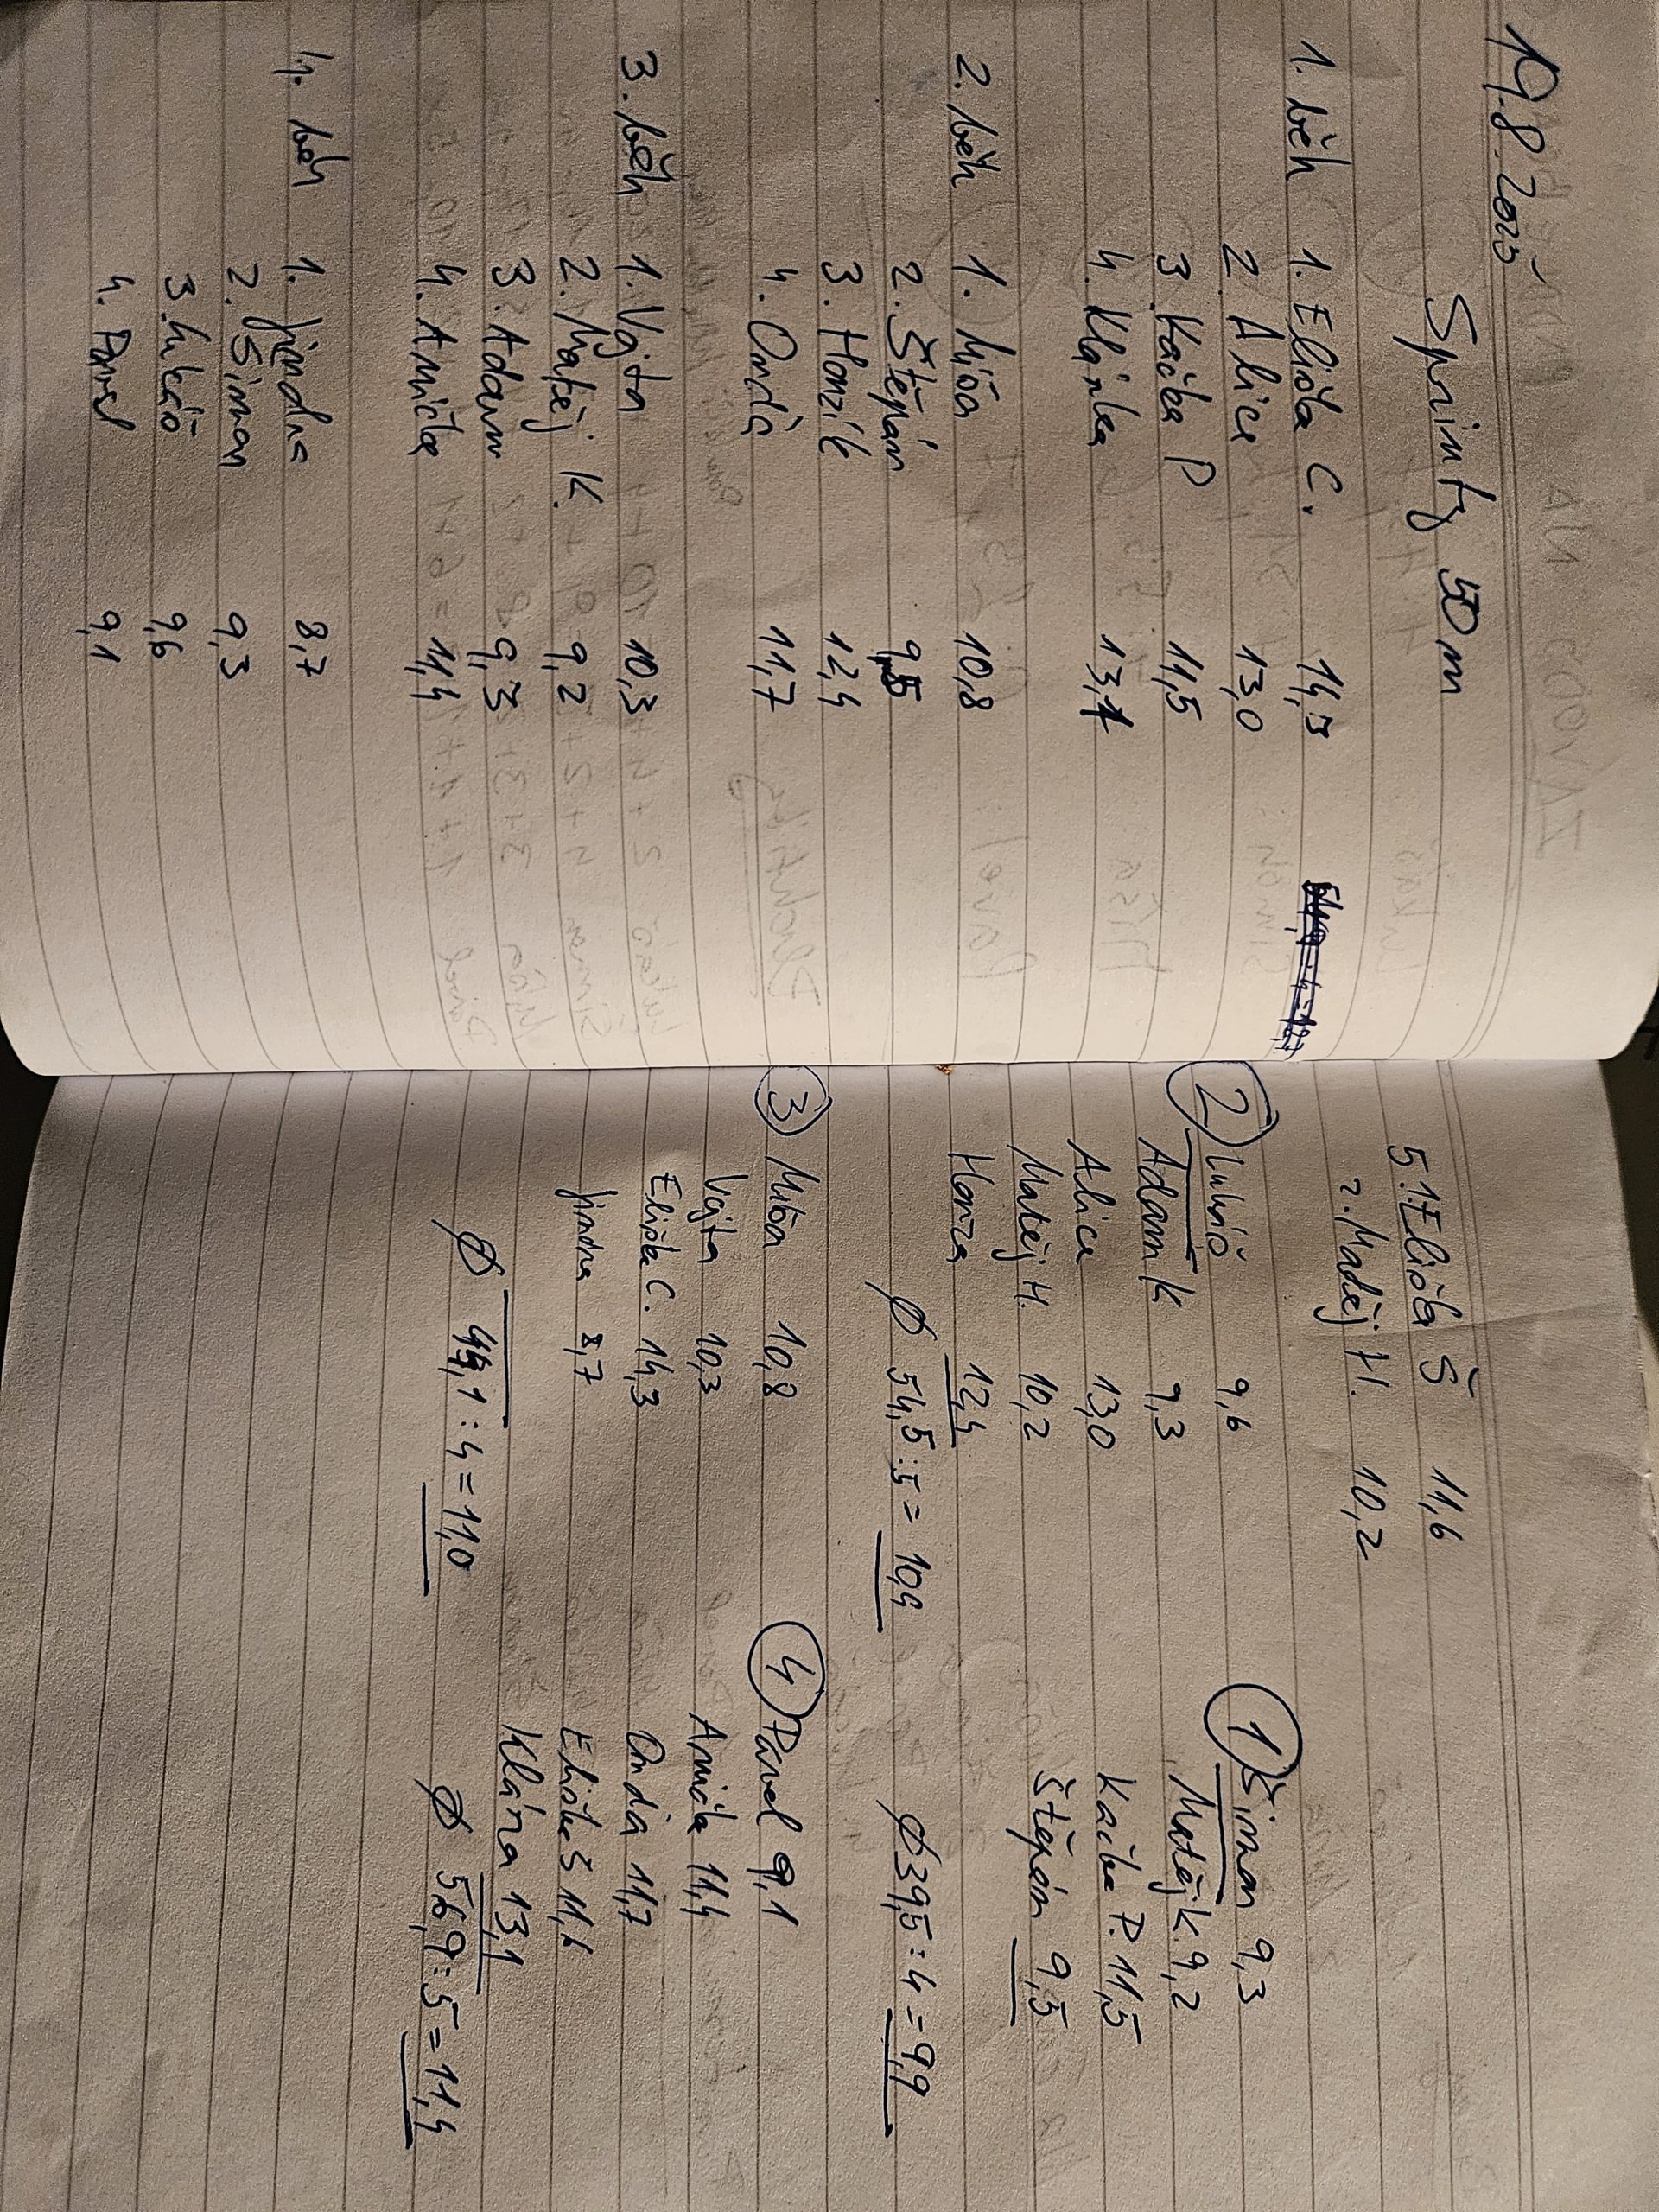 19.8.2025
Sprinty 50 m
1. běh 1. Eliška C. 14,3
2. Alice 13,0
3. Kačka P 11,5
4. Klárka 13,1
2. běh 1. Míša 10,8
2. Štěpán 9,5
3. Honzík 12,4
4. Onda 11,7
3. běh 1. Vojta 10,3
2. Matěj K. 9,2
3. Adam 9,3
4. Anička 11,4
4. běh 1. Jindra 8,7
2. Šimon 9,3
3. Lukáš 9,6
4. Pavel 9,1
5. 1. Eliška Š 11,6
2. Matěj H. 10,2
2 Lukáš 9,6
Adam K 9,3
Alice 13,0
Matěj H. 10,2
Honza 12,4
Ø 54,5 : 5 = 10,9
1 Šimon 9,3
Matěj K. 9,2
Kačka P. 11,5
Štěpán 9,5
Ø 39,5 : 4 = 9,9
3 Míša 10,8
Vojta 10,3
Eliška C. 14,3
Jindra 8,7
Ø 44,1 : 4 = 11,0
4 Pavel 9,1
Anička 11,4
Onda 11,7
Eliška Š 11,6
Klára 13,1
Ø 56,9 : 5 = 11,4